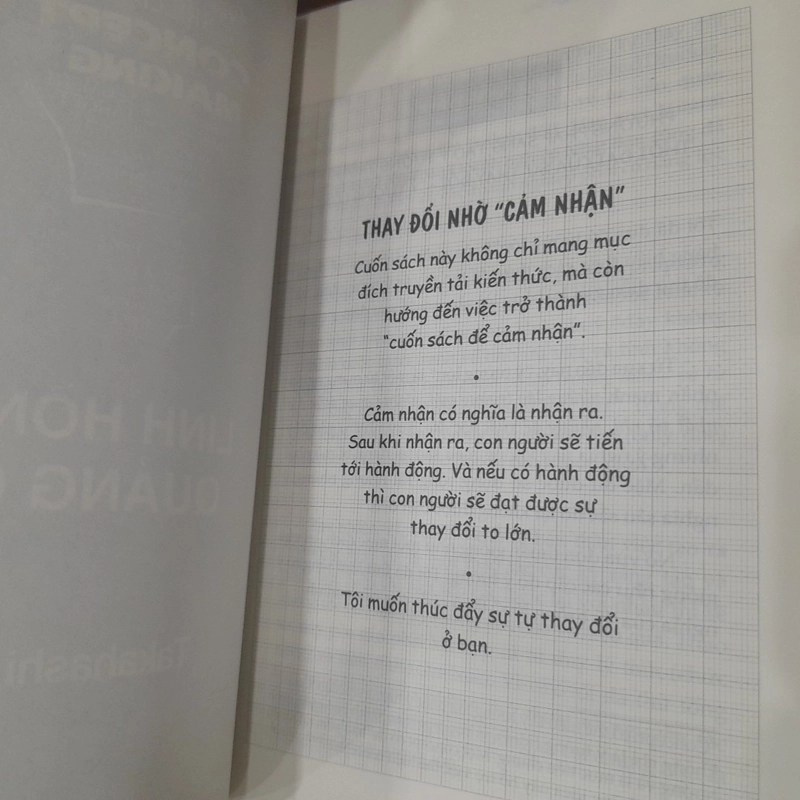 CONCEPT
MAKING
LINH HỒN
QUẢNG
Takahashi
THAY ĐỔI NHỜ “CẢM NHẬN”
Cuốn sách này không chỉ mang mục
đích truyền tải kiến thức, mà còn
hướng đến việc trở thành
“cuốn sách để cảm nhận”.
•
Cảm nhận có nghĩa là nhận ra.
Sau khi nhận ra, con người sẽ tiến
tới hành động. Và nếu có hành động
thì con người sẽ đạt được sự
thay đổi to lớn.
•
Tôi muốn thúc đẩy sự tự thay đổi
ở bạn.